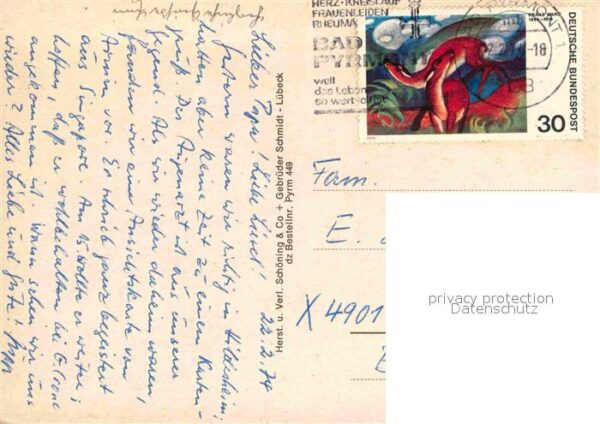 Herzliche Grüße
22.2.74
Lieber Papa! Liebe Liesel!
Gestern waren wir richtig in Hildesheim,
hatten aber keine Zeit zu einem Karten-
gruß. Der Augenarzt ist aus unserer
Gegend. Als wir wieder daheim waren,
fanden wir eine Ansichtskarte von
Armin vor. Er schrieb ganz begeistert
aus Singapore. Am 15. wollte er weiter;
hoffen, daß er wohlbehalten bei
angekommen ist. Wann sehen wir uns
wieder? Alles Liebe und Gute!
Herst. u. Verl. Schöning & Co + Gebrüder Schmidt - Lübeck
dz Bestellnr. Pyrm 449
HERZ-KREISLAUF
FRAUENLEIDEN
RHEUMA
BAD
PYRMONT
weil
das Leben
so wertvoll ist
-18
DEUTSCHE BUNDESPOST
30
Fam.
E.
X 4901
privacy protection
Datenschutz